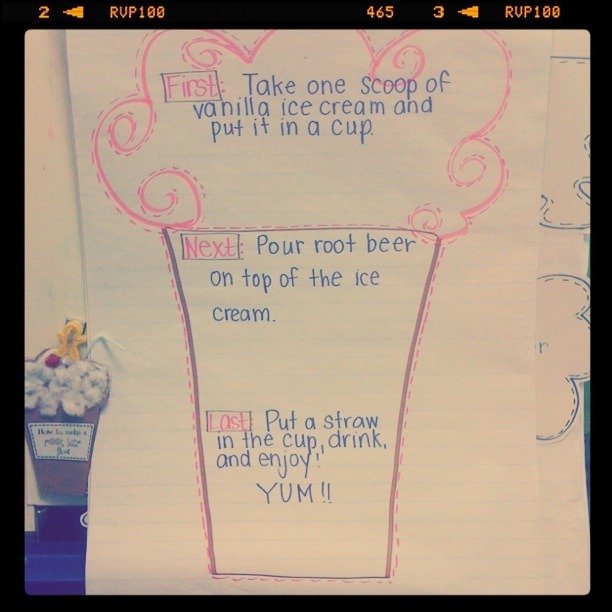 2 RVP100 465 3 RVP100
First: Take one scoop of
vanilla ice cream and
put it in a cup.
Next: Pour root beer
on top of the ice
cream.
Last: Put a straw
in the cup, drink,
and enjoy!
YUM!!
How to make a
Float
r